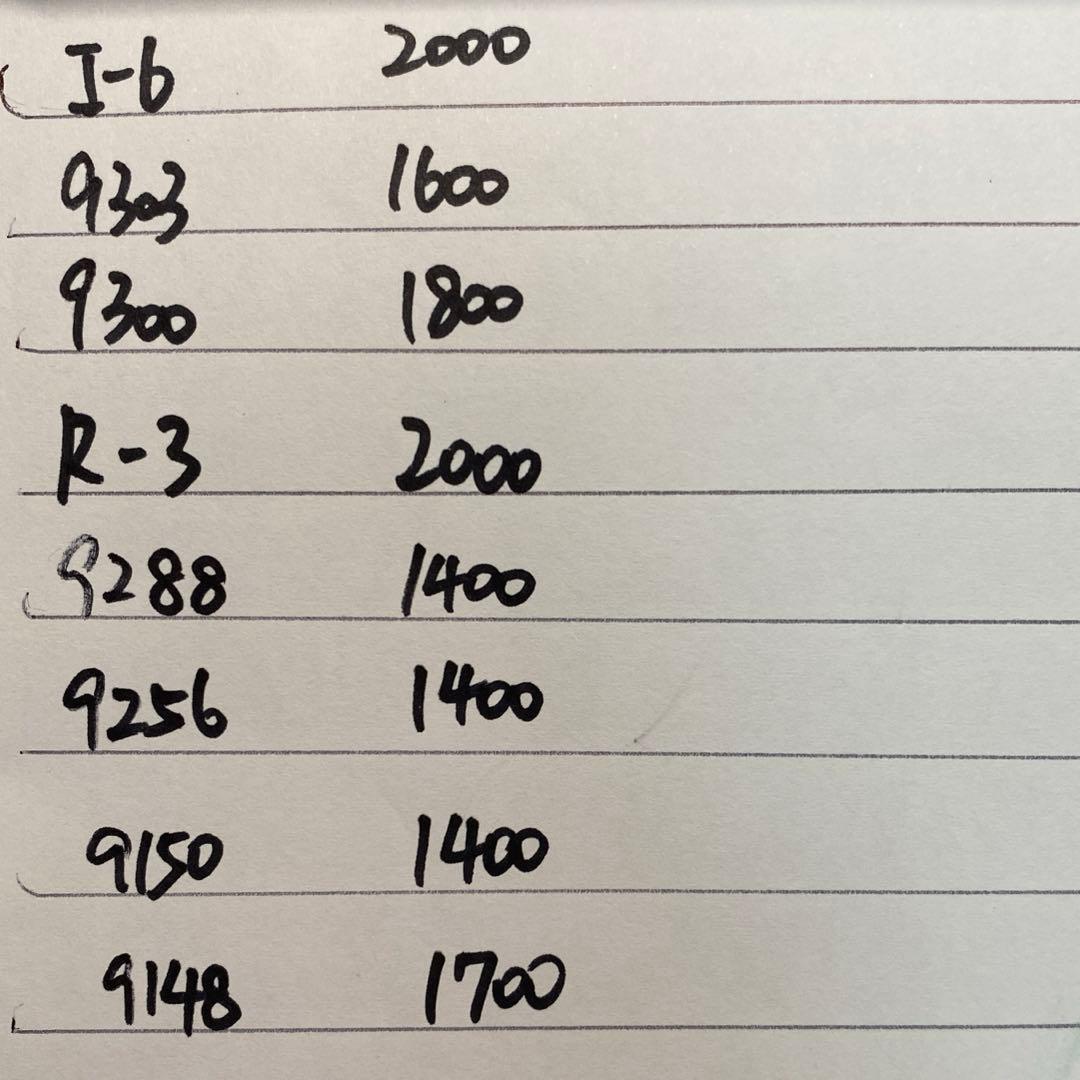 I-6 2000
9303 1600
9300 1800
R-3 2000
9288 1400
9256 1400
9150 1400
9148 1700